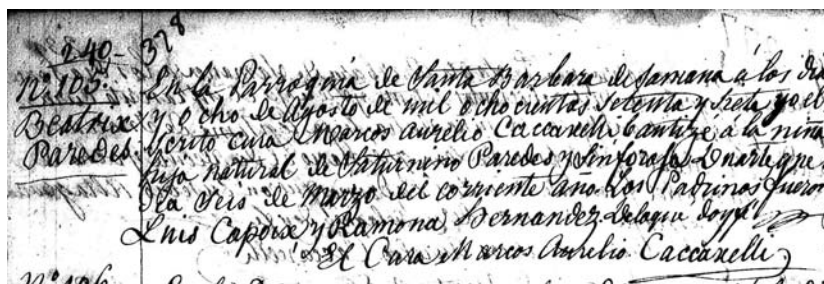 240-
378
Nº 105.
Beatrix
Paredes.
En la Parroquia de Santa Barbara de Samana á los die
y ocho de Agosto de mil ochocientos setenta y siete yo el
scrito cura Marcos Aurelio Caccavelli bautizé á la niña
hija natural de Saturnino Paredes y Sinforosa Duarte que
dia seis de Marzo del corriente año. Los Padrinos fueron
Luis Capoix y Ramona Hernandez. De la que doy fé
El Cura Marcos Aurelio Caccavelli
Nº 106